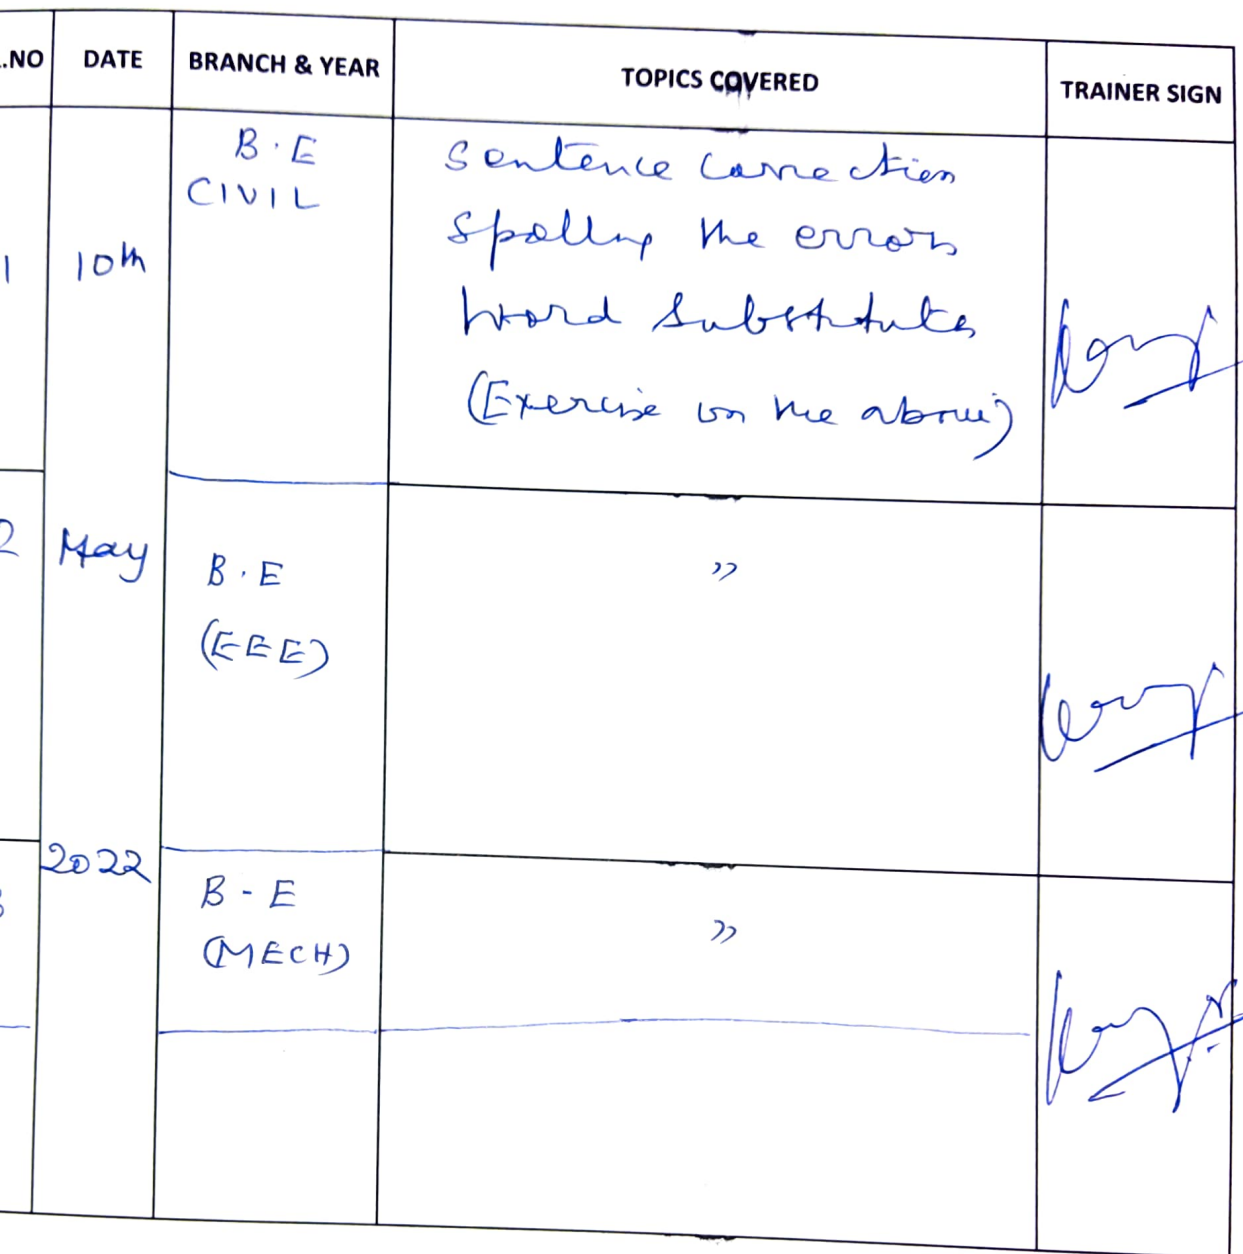 .NO DATE BRANCH & YEAR TOPICS COVERED TRAINER SIGN
B.E
CIVIL
Sentence Correction
Spotting the errors
1 10th
Word Substitutes
(Exercise on the above)
2 May
B.E
(EEE)
"
2022
3
B-E
(MECH)
"